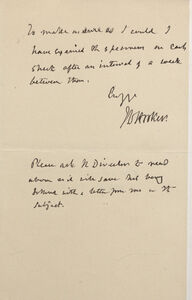 To make as sure as I could I
have examined the specimens on each
sheet after an interval of a week
between them.
JD Hooker
Please ask the Director to read
above as it will save his being
with a letter from me on the
subject.